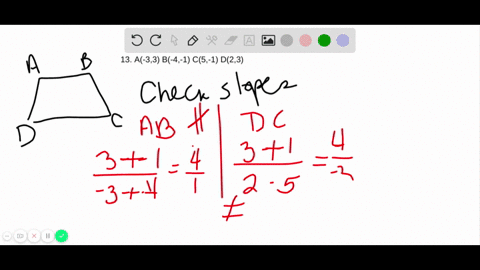 13. A(-3,3) B(-4,-1) C(5,-1) D(2,3)
A B
D C
Check slopes
AB ∦ DC
3+1/-3+4 = 4/1
3+1/2-5 = 4/-3
≠